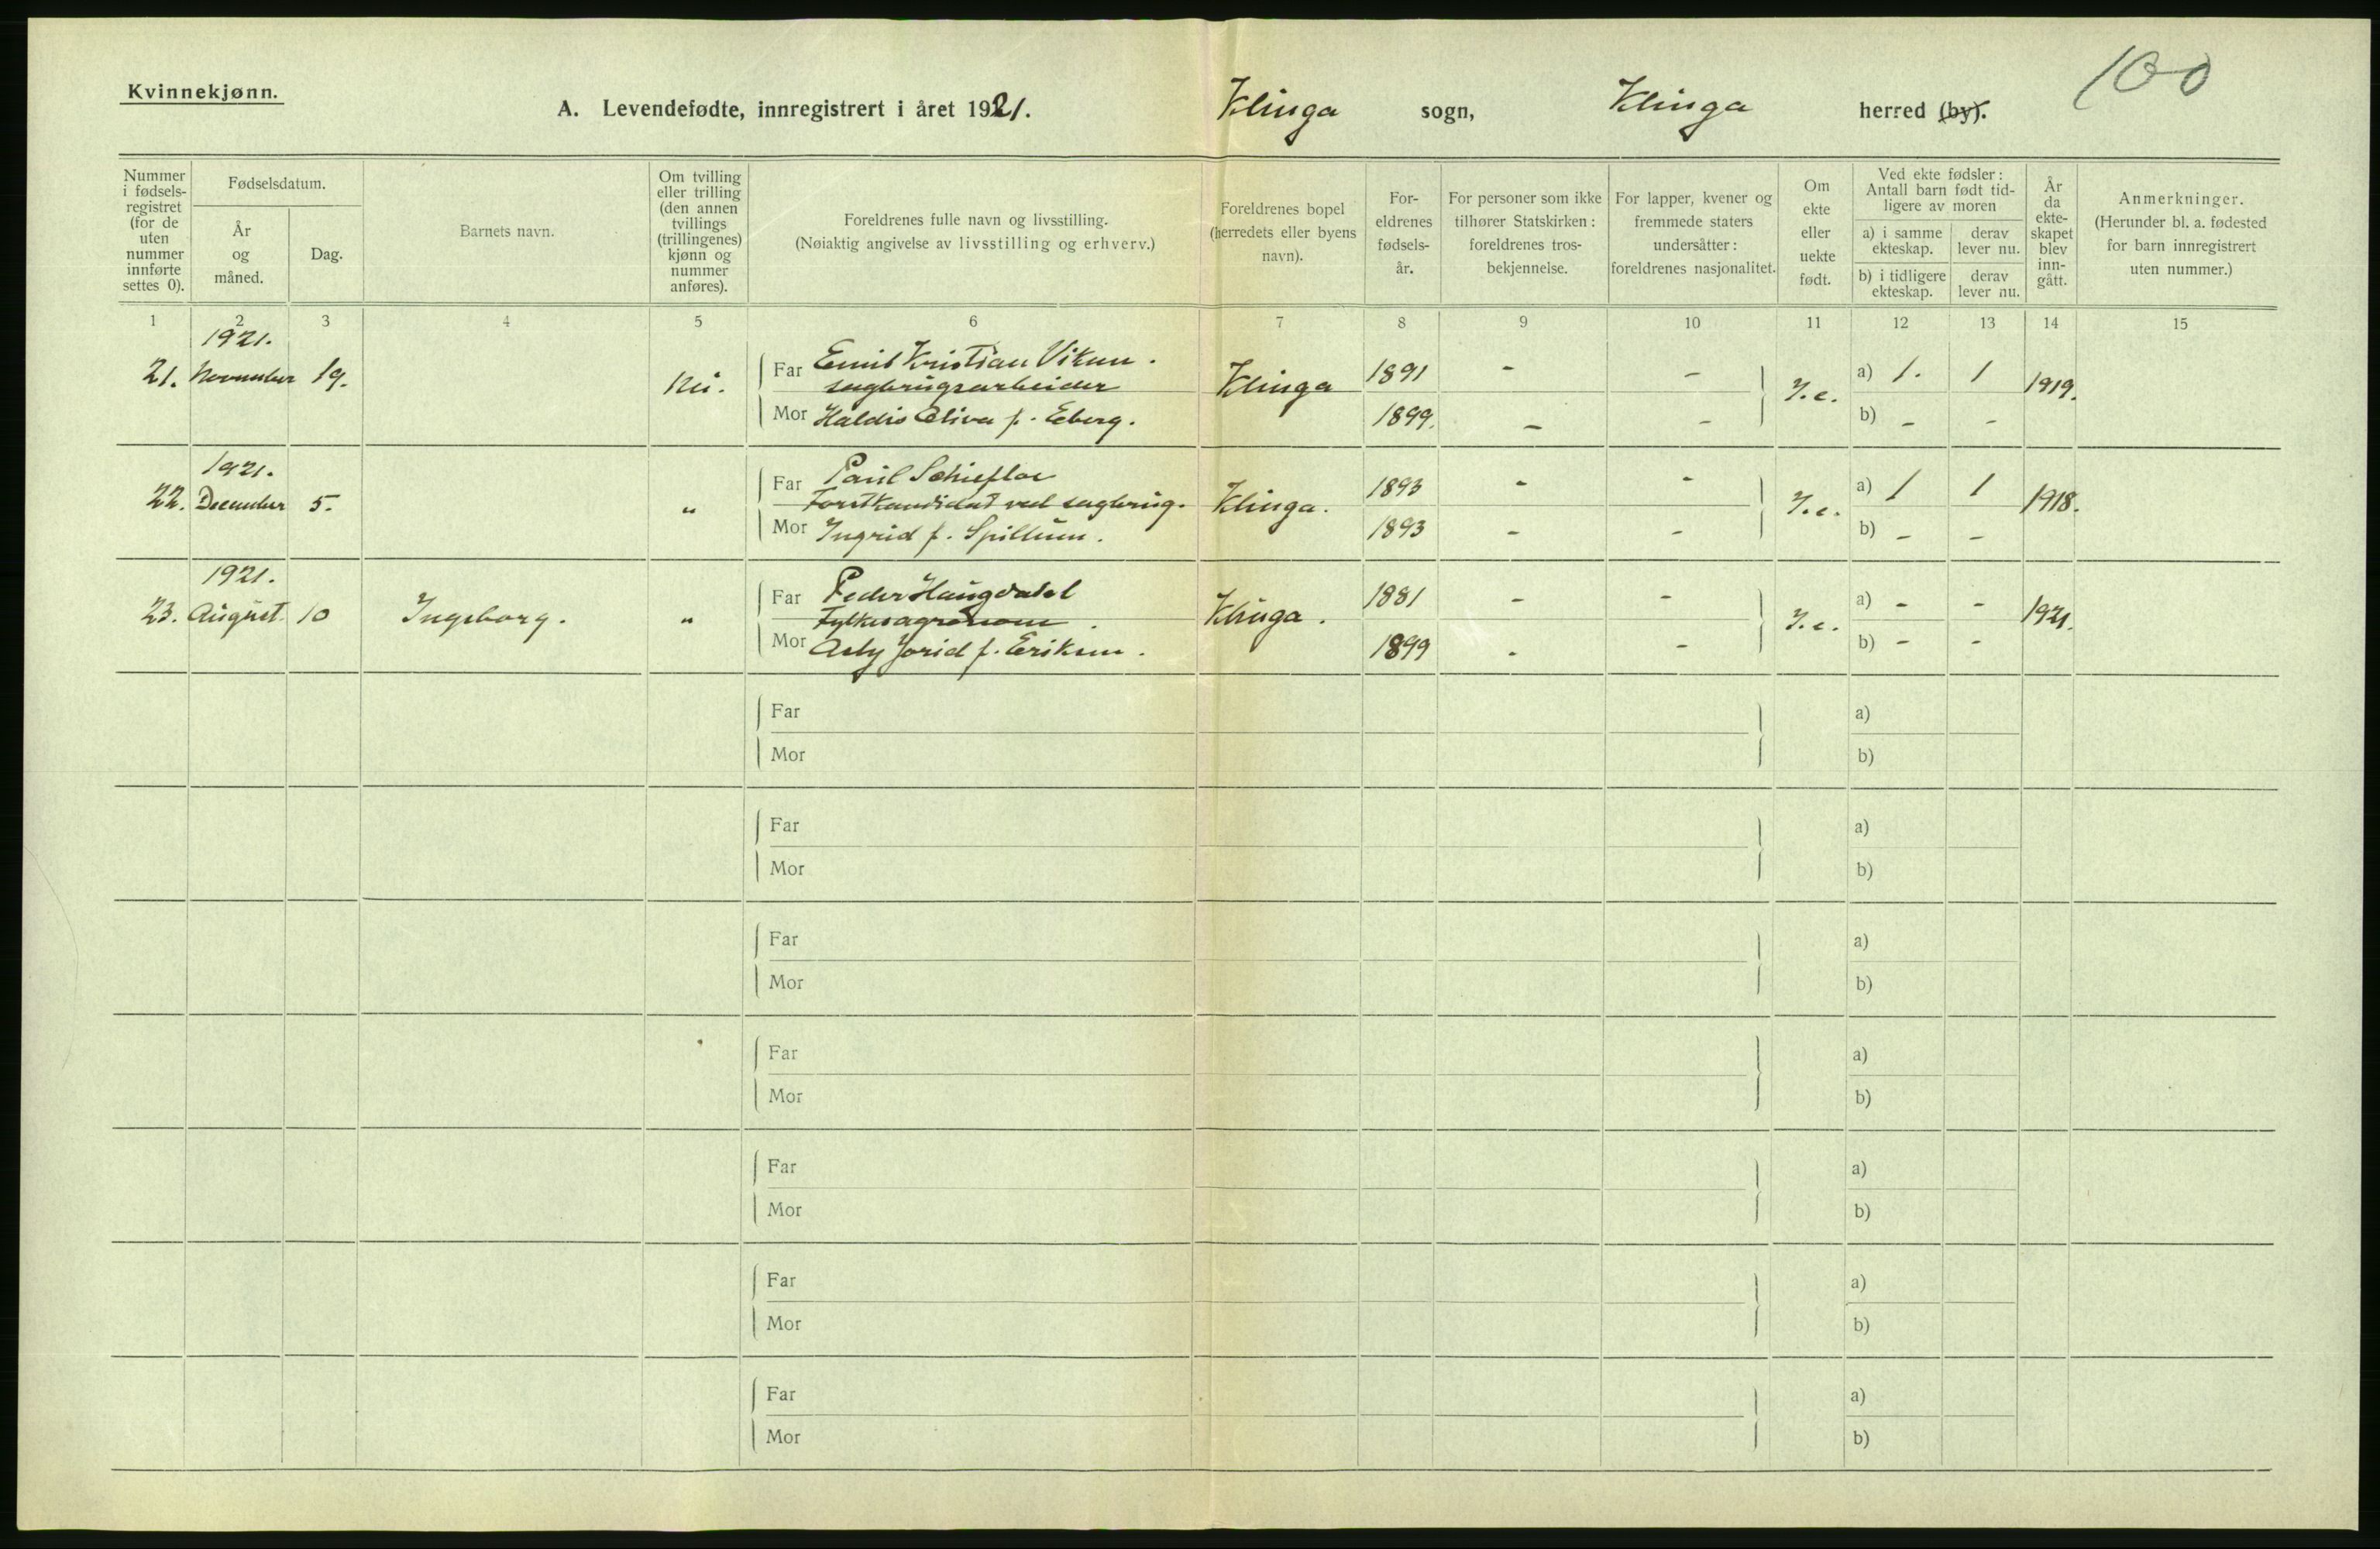 Kvinnekjønn.
A. Levendefødte, innregistrert i året 1921. Klinga sogn, Klinga herred (by).
100
Nummer i fødsels-registret (for de uten nummer innførte settes 0).
Fødselsdatum.
År og måned.
Dag.
Barnets navn.
Om tvilling eller trilling (den annen tvillings (trillingenes) kjønn og nummer anføres).
Foreldrenes fulle navn og livsstilling.
(Nøiaktig angivelse av livsstilling og erhverv.)
Foreldrenes bopel (herredets eller byens navn).
For-eldrenes fødsels-år.
For personer som ikke tilhører Statskirken: foreldrenes tros-bekjennelse.
For lapper, kvener og fremmede staters undersåtter: foreldrenes nasjonalitet.
Om ekte eller uekte født.
Ved ekte fødsler: Antall barn født tid-ligere av moren
a) i samme ekteskap.
derav lever nu.
b) i tidligere ekteskap.
derav lever nu.
År da ekte-skapet blev inn-gått.
Anmerkninger.
(Herunder bl. a. fødested for barn innregistrert uten nummer.)
1 2 3 4 5 6 7 8 9 10 11 12 13 14 15
1921.
21. November 19. Nei. Far Emil Kristian Viken. Klinga 1891 - - a) 1. 1 1919.
sagbrugsarbeider
Mor Haldis Oliva f. Eberg. 1899. - - b) - -
1921.
22. December 5. " Far Paul Schiefloe Klinga. 1893 - - a) 1 1 1918.
Forstkandidat ved sagbrug.
Mor Ingrid f. Spillum. 1893 - - b) - -
1921.
23. August 10 Ingeborg. " Far Peder Haugdahl Klinga. 1881 - - a) - - 1921.
Fylkesagronom.
Mor Asly Jorid f. Eriksen. 1899 - - b) - -
Far a)
Mor b)
Far a)
Mor b)
Far a)
Mor b)
Far a)
Mor b)
Far a)
Mor b)
Far a)
Mor b)
Far a)
Mor b)